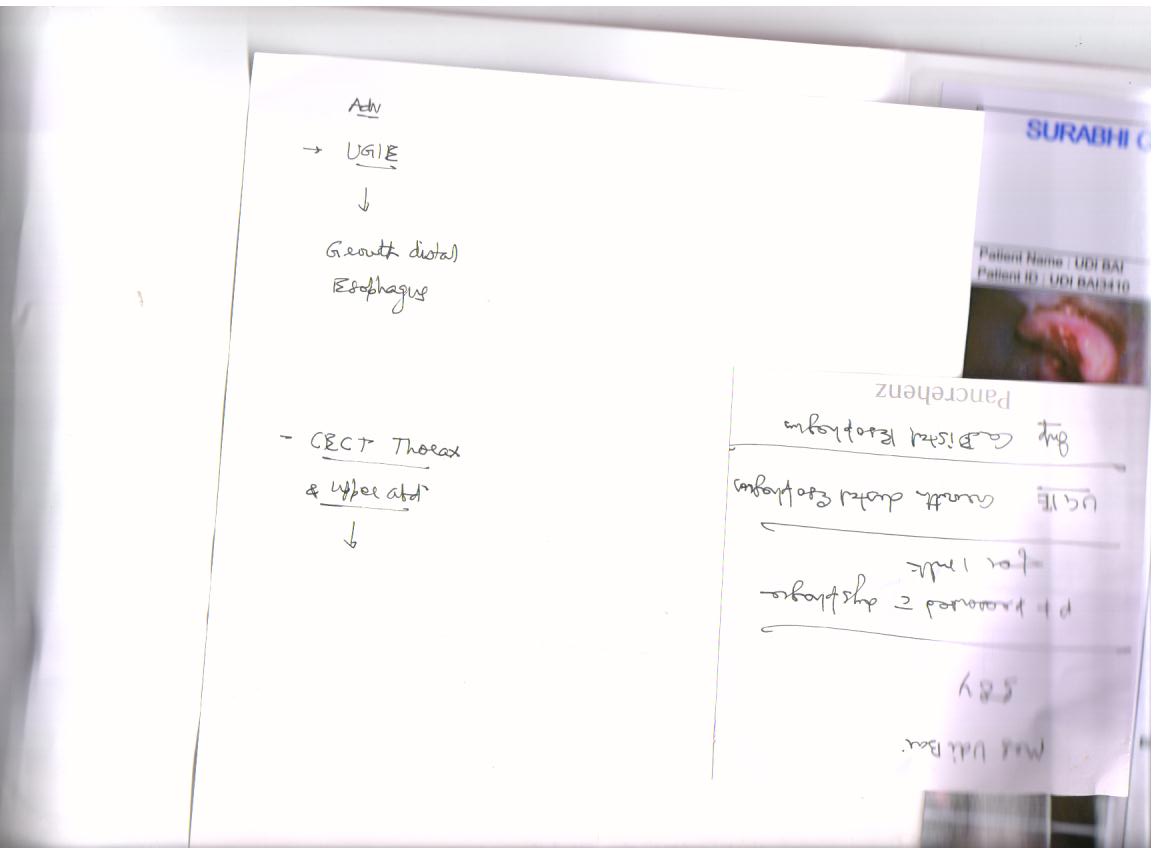 Adv
→ UGIE
↓
Growth distal
Esophagus
- CECT Thorax
& upper abd
↓
SURABHI
Patient Name : UDI BAI
Patient ID : UDI BAI3410
Mrs Udi Bai
58Y
pt presented c̄ dysphagia
for 1 mth
UGIE Growth distal Esophagus
Imp Ca Distal Esophagus
Pancrehenz